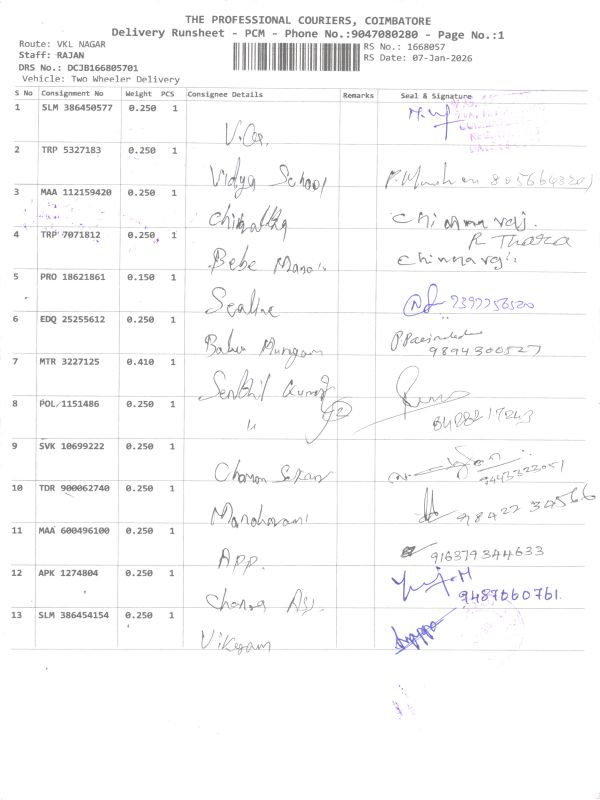 THE PROFESSIONAL COURIERS, COIMBATORE
Delivery Runsheet - PCM - Phone No.:9047080280 - Page No.:1
Route: VKL NAGAR
Staff: RAJAN
DRS No.: DCJB166805701
Vehicle: Two Wheeler Delivery
RS No.: 1668057
RS Date: 07-Jan-2026
S No Consignment No Weight PCS Consignee Details Remarks Seal & Signature
1 SLM 386450577 0.250 1
2 TRP 5327183 0.250 1 Vidya School
3 MAA 112159420 0.250 1 Chinnaraj.
R Thara
4 TRP 7071812 0.250 1 Bebe Chinnaraj.
5 PRO 18621861 0.150 1 Sealine
6 EDQ 25255612 0.250 1 Babu Murugan 9894300527
7 MTR 3227125 0.410 1 Senthil Kumar
8 POL 1151486 0.250 1 "
9 SVK 10699222 0.250 1 9443323051
10 TDR 900062740 0.250 1 Manoharani 98422 34566
11 MAA 600496100 0.250 1 APP. 916379344633
12 APK 1274804 0.250 1 9487660761.
13 SLM 386454154 0.250 1 Vikram